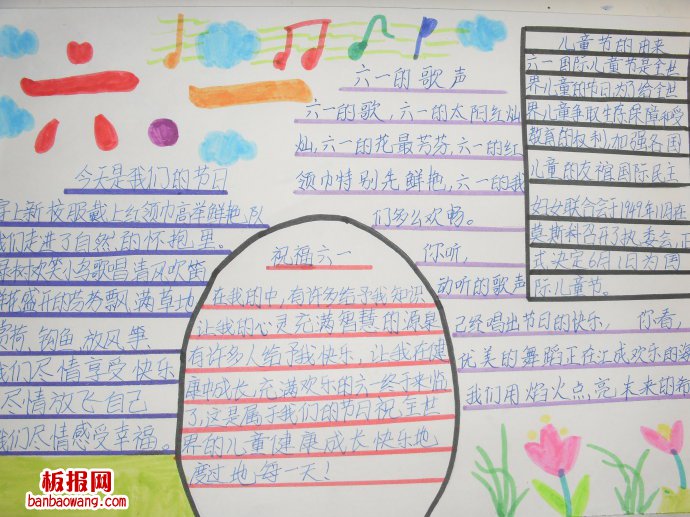 六一
今天是我们的节日
穿上新校服戴上红领巾高举鲜艳队
我们走进了自然的怀抱里。
欢笑小鸟歌唱清风吹笛
鲜花盛开的芳芬飘满草地
钩鱼,放风筝
我们尽情享受快乐
尽情放飞自己
我们尽情感受幸福。
祝福六一
在我的中,有许多给予我知识
让我的心灵充满智慧的源泉
有许多人给予我快乐,让我在健
康中成长,充满欢乐的六一终于来临
了,这是属于我们的节日祝全世
界的儿童健康成长快乐地
度过地每一天!
六一的歌声
六一的歌,六一的太阳红灿
灿,六一的花最芳芬,六一的红
领巾特别先鲜艳,六一的我
们多么欢畅。
你听,
动听的歌声
已经唱出节日的快乐, 你看,
优美的舞蹈正在汇成欢乐的
我们用焰火点亮未来的
儿童节的由来
六一国际儿童节是全世
界儿童的节日为了给全世
界儿童争取生存保障和受
教育的权利,加强各国
儿童的友谊国际民主
妇女联合会于1949年11月在
莫斯科召开了执委会,正
式决定6月1日为国
际儿童节。
板报网
banbaowang.com